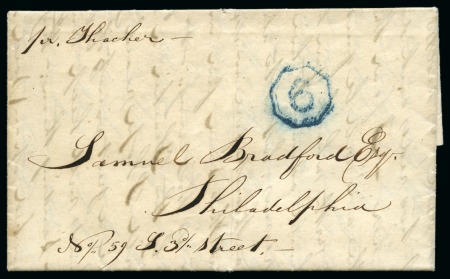 pr. Thacher —
6
Samuel Bradford Esq.
Philadelphia
No. 59 S. 3d. street. —